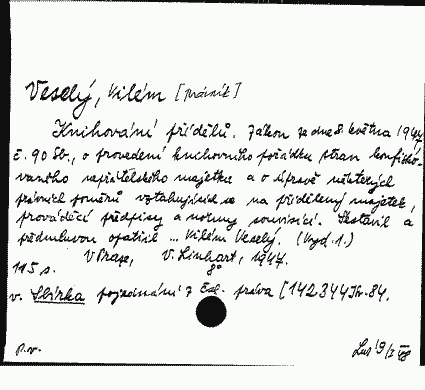 Veselý, Vilém [právník]
Knihování přídělů. Zákon ze dne 8. května 1947,
č. 90 Sb., o provedení knihovního pořádku stran konfisko-
vaného nepřátelského majetku a o úpravě některých
právních poměrů vztahujících se na přidělený majetek,
prováděcí předpisy a normy souvisící. Sestavil a
předmluvou opatřil ... Vilém Veselý. (Vyd. 1.)
V Praze, V. Linhart, 1947.
115 s. 8°
v. Sbírka pojednání z čsl. práva [
P.v.